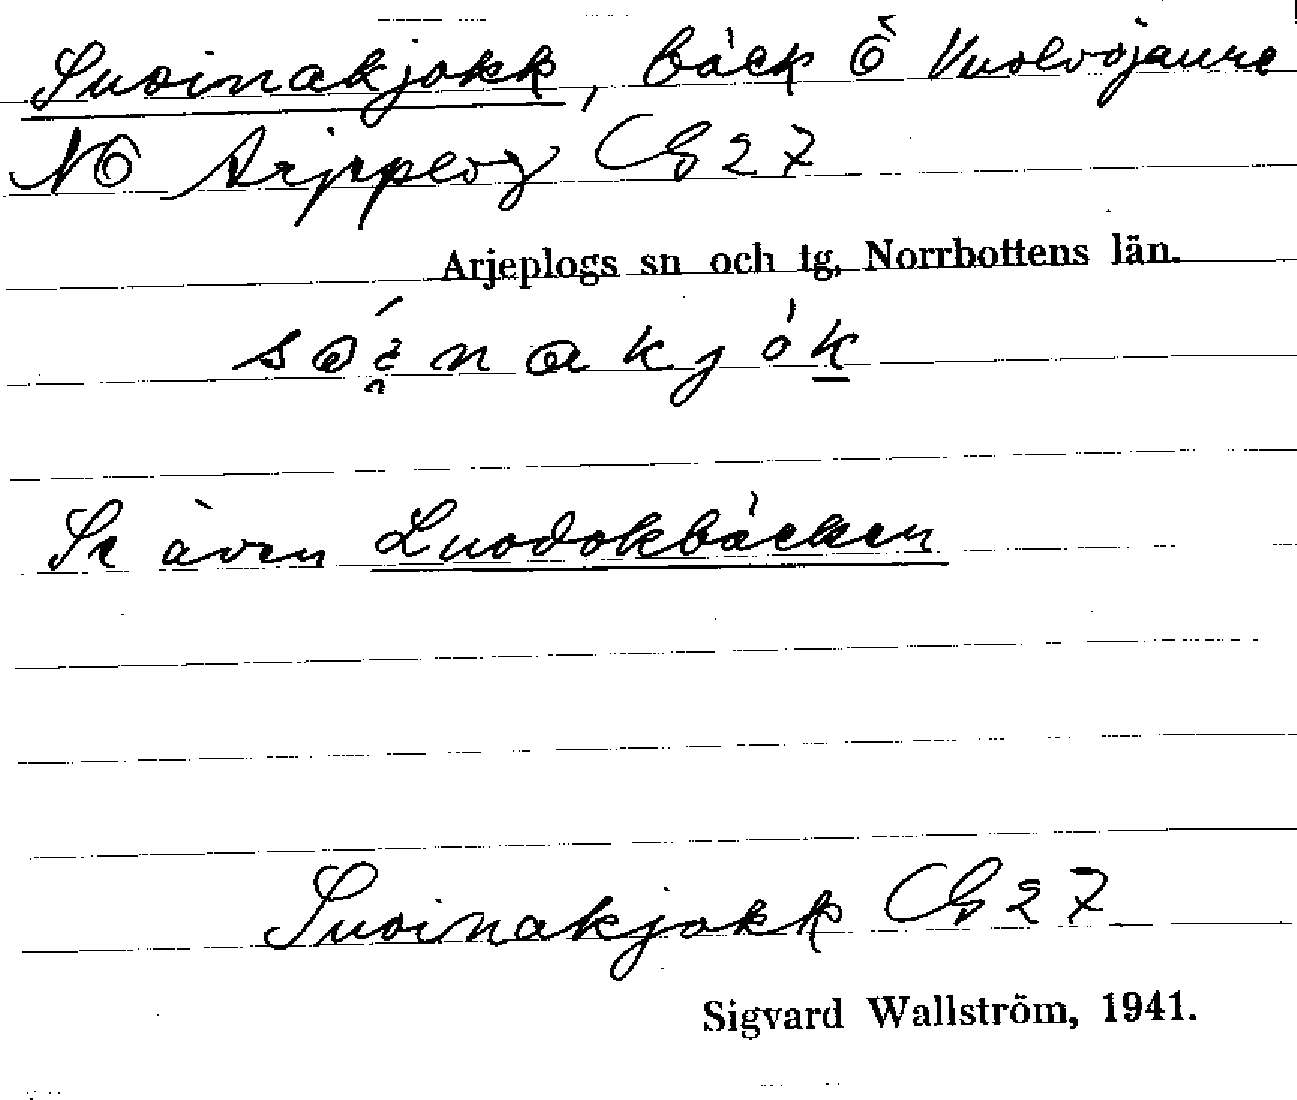 Suoinakjokk, bäck Ö Vuolvojaure
NO Arjeplog GS 27
Arjeplogs sn och tg, Norrbottens län.
Se även Luodokbäcken
Suoinakjokk GS 27
Sigvard Wallström, 1941.